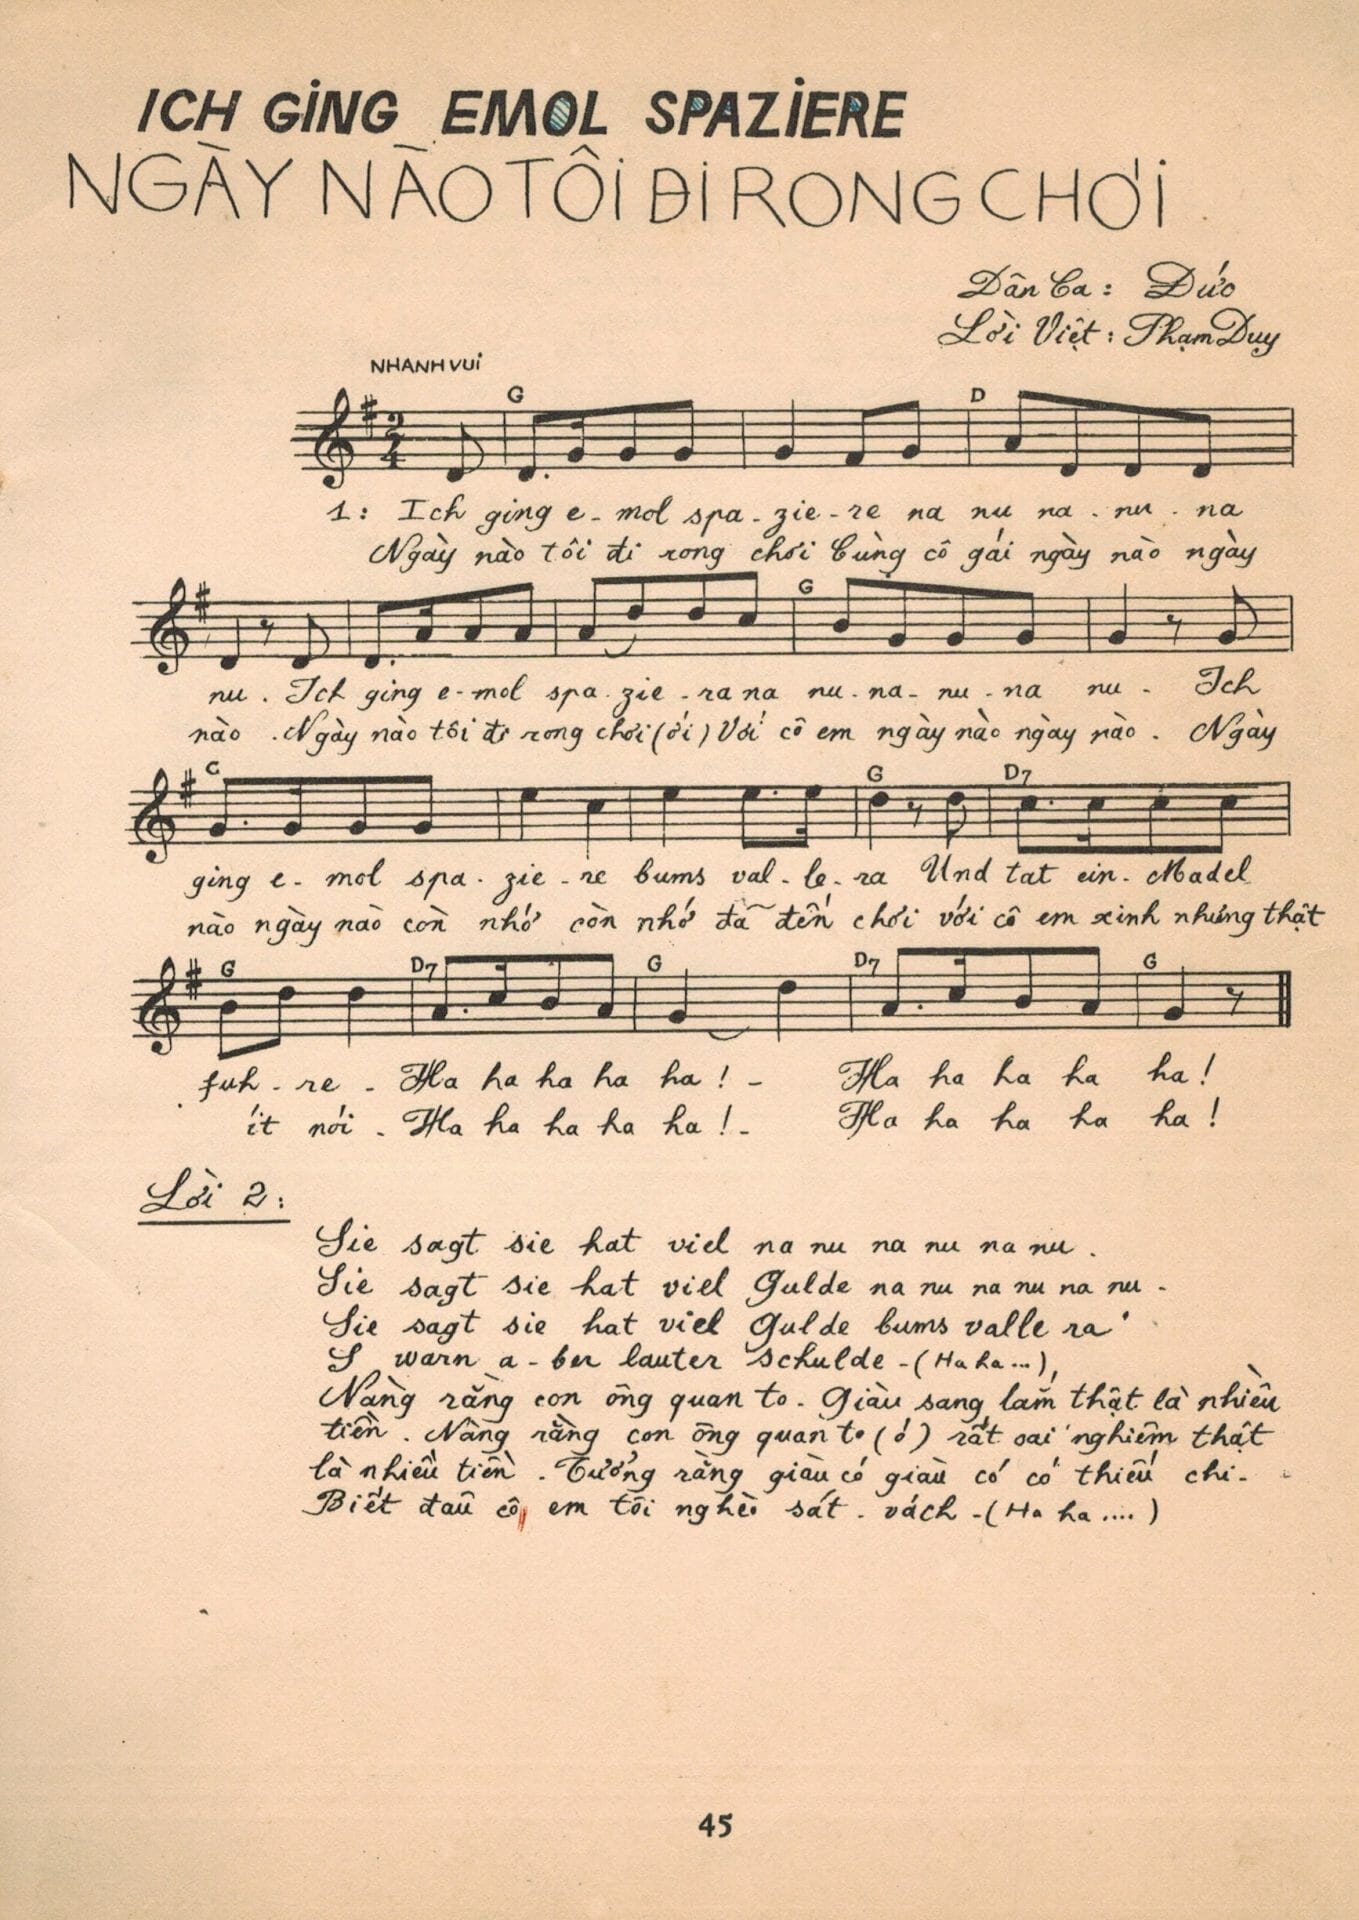 ICH GING EMOL SPAZIERE
NGÀY NÀO TÔI ĐI RONG CHƠI
Dân Ca : Đức
Lời Việt : Phạm Duy
NHANH VUI
G D
2
4
1: Ich ging e - mol spa - zie - re na nu na - nu - na
Ngày nào tôi đi rong chơi Cùng cô gái ngày nào ngày
G
nu . Ich ging e - mol spa - zie - ra na nu - na - nu - na nu - Ich
nào . Ngày nào tôi đi rong chơi (ơi) Với cô em ngày nào ngày nào . Ngày
C G D7
ging e - mol spa - zie - re bums val - le - ra Und tat ein - Madel
nào ngày nào còn nhớ còn nhớ đã đến chơi với cô em xinh nhưng thật
G D7 G D7 G
fuh - re - Ha ha ha ha ha ! - Ha ha ha ha ha !
ít nói - Ha ha ha ha ha ! - Ha ha ha ha ha !
Lời 2 :
Sie sagt sie hat viel na nu na nu na nu .
Sie sagt sie hat viel Gulde na nu na nu na nu -
Sie sagt sie hat viel Gulde bums valle ra
S warn a - ber lauter schulde - ( Ha ha ... )
Nàng rằng con ông quan to . Giàu sang lắm thật là nhiều
tiền . Nàng rằng con ông quan to ( ó ) rất oai nghiêm thật
là nhiều tiền . Tưởng rằng giàu có giàu có có thiếu chi -
Biết đâu cô em tôi nghèo sát - vách - ( Ha ha .... )
45